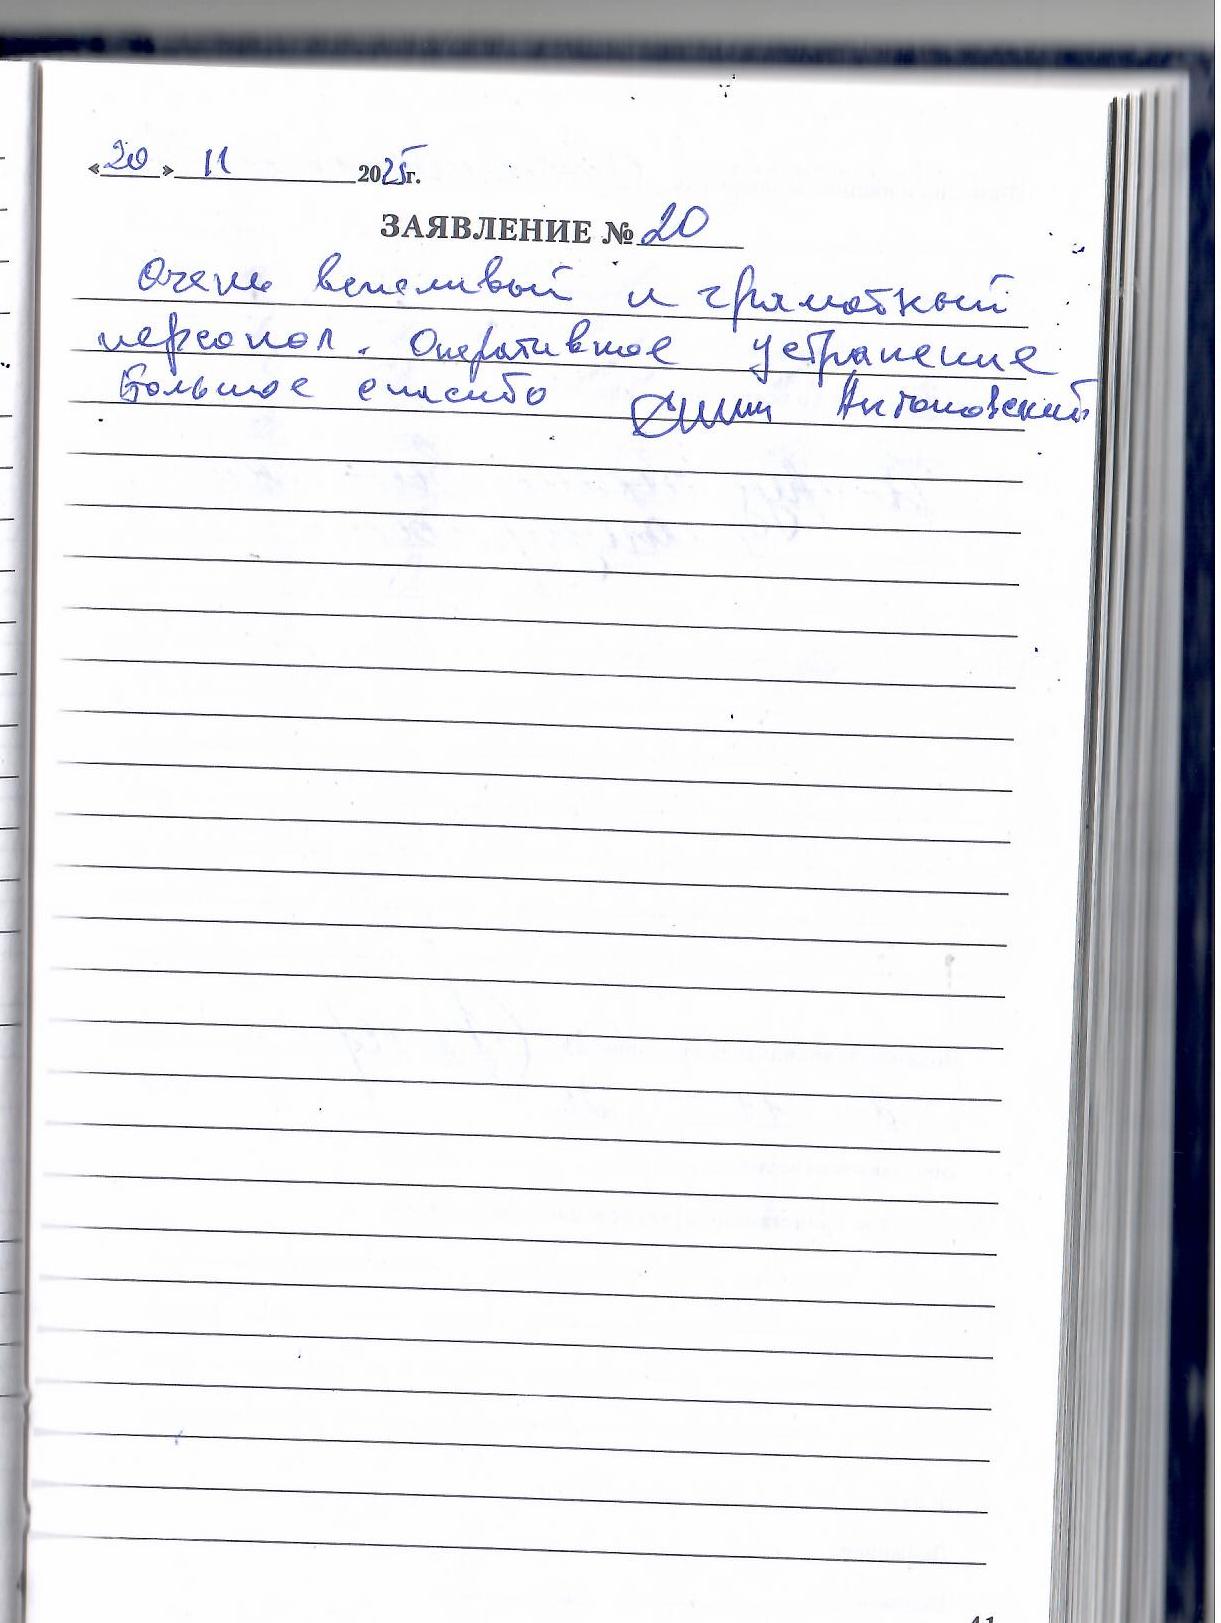 «20» 11 2025г.
ЗАЯВЛЕНИЕ № 20
Очень вежливый и грамотный
персонал. Оперативное устранение
Большое спасибо Антоновский